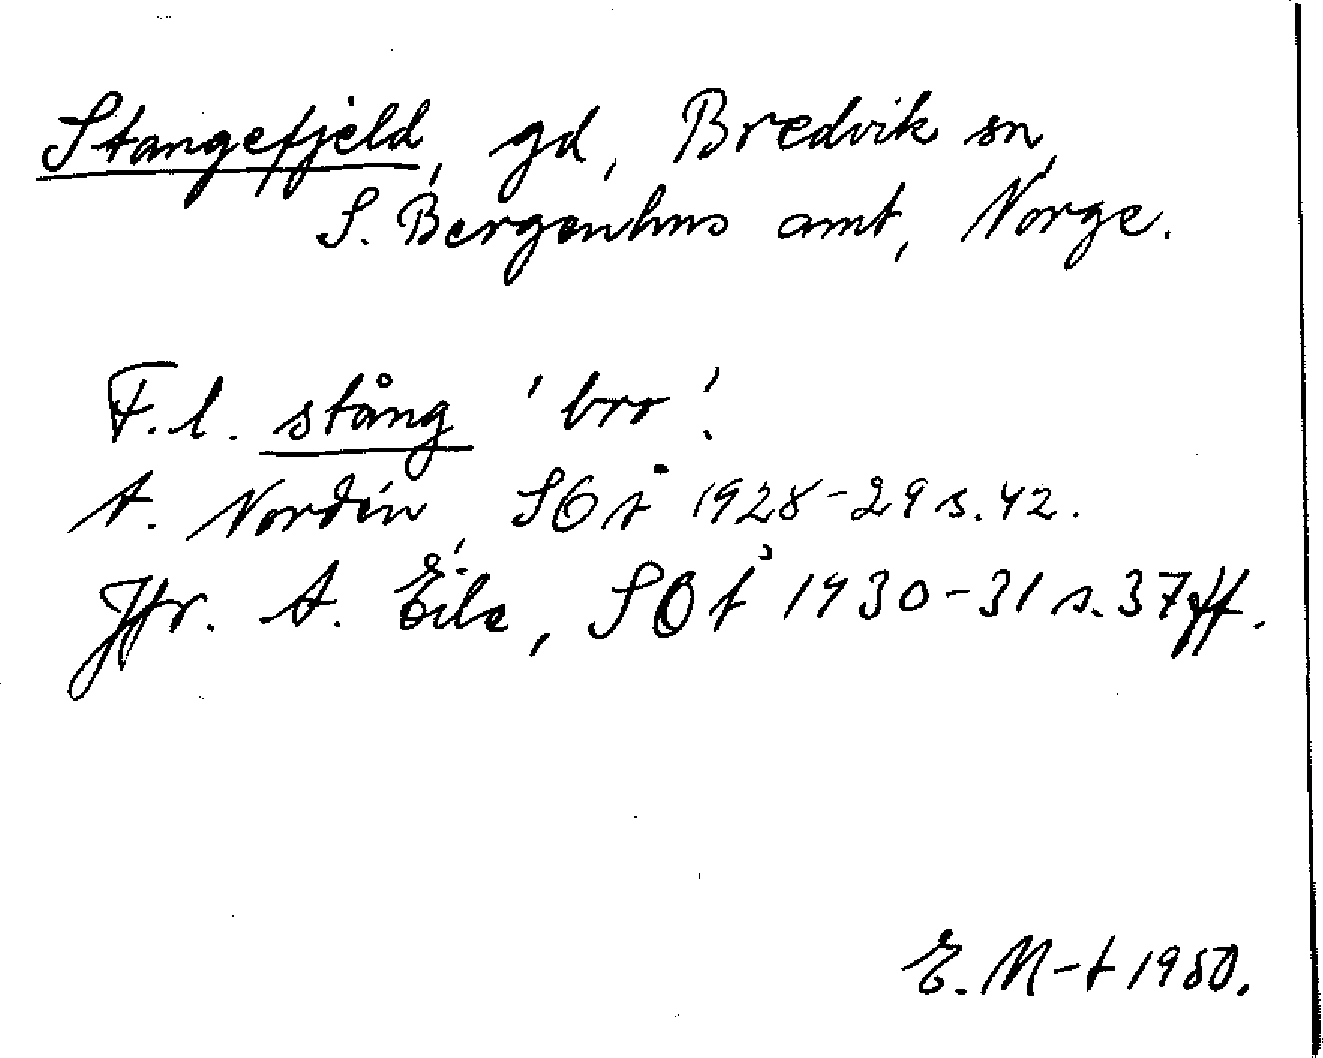 Stangefjeld, gd, Bredvik sn,
S. Bergenhus amt, Norge.
F.l. stång 'bro'.
A. Nordén, SOÅ 1928-29 s. 42.
Jfr. A. Eile, SOÅ 1930-31 s. 37 ff.
E. M-t 1950.